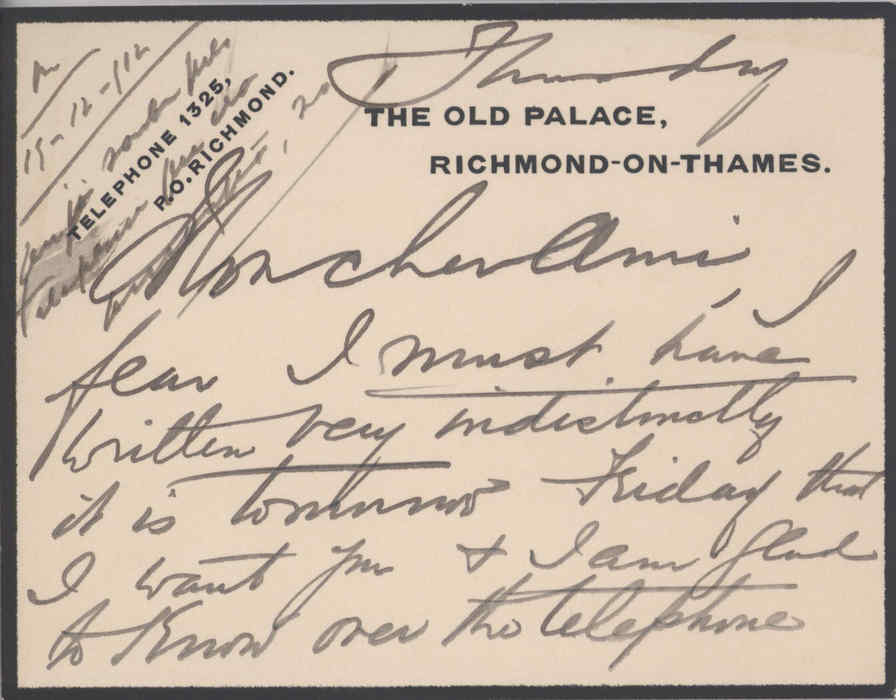 Thursday
THE OLD PALACE,
RICHMOND-ON-THAMES.
TELEPHONE 1325,
P.O. RICHMOND.
19-12-912
Mon cher Ami, I
fear I must have
written very indistinctly
it is tomorrow Friday that
I want you & I am glad
to know over the telephone